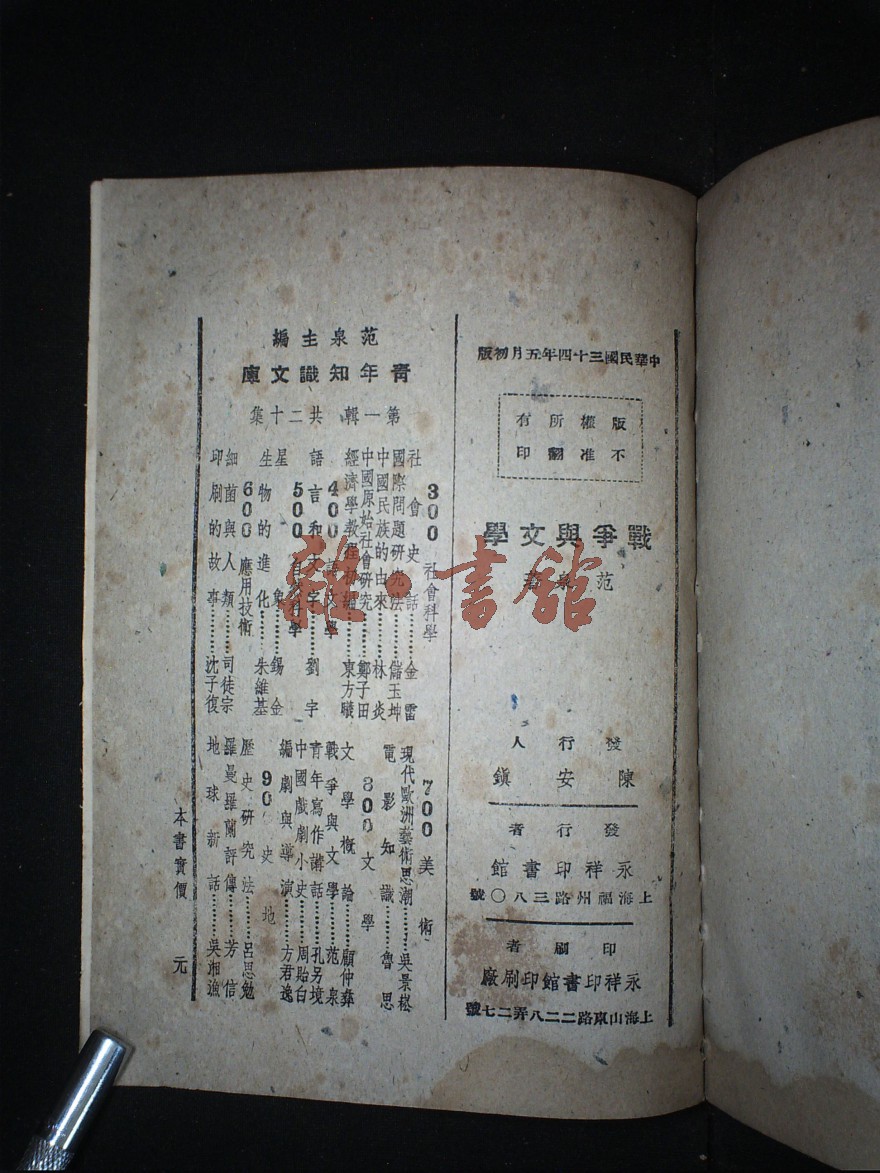 中華民國三十四年五月初版
版權所有
不准翻印
戰爭與文學
范泉著
發行人
陳安鎮
發行者
永祥印書館
上海福州路三八〇號
印刷者
永祥印書館印刷廠
上海山東路二二八弄二七號
范泉主編
青年知識文庫
第一輯 共二十集
300 社會科學
社會史話………金雷
國際問題研究法………儲玉坤
中國民族的由來………林炎
中國原始社會研究………鄭子田
經濟學教程初編………東方
400 語文學
語言和文字………劉宇
500 自然科學
星象………錫金
生物的進化………朱維基
600 應用技術
細菌與人類………司徒宗
印刷的故事………沈子復
700 美術
現代歐洲藝術思潮………吳景崧
電影知識………魯思
800 文學
文學概論………顧仲彝
戰爭與文學………范泉
青年寫作講話………孔另境
中國戲劇小史………周貽白
編劇與導演………方君逸
90 史地
歷史研究法………呂思勉
羅曼羅蘭評傳………芳信
地球新話………吳湘漁
本書實價 元
雜·書館